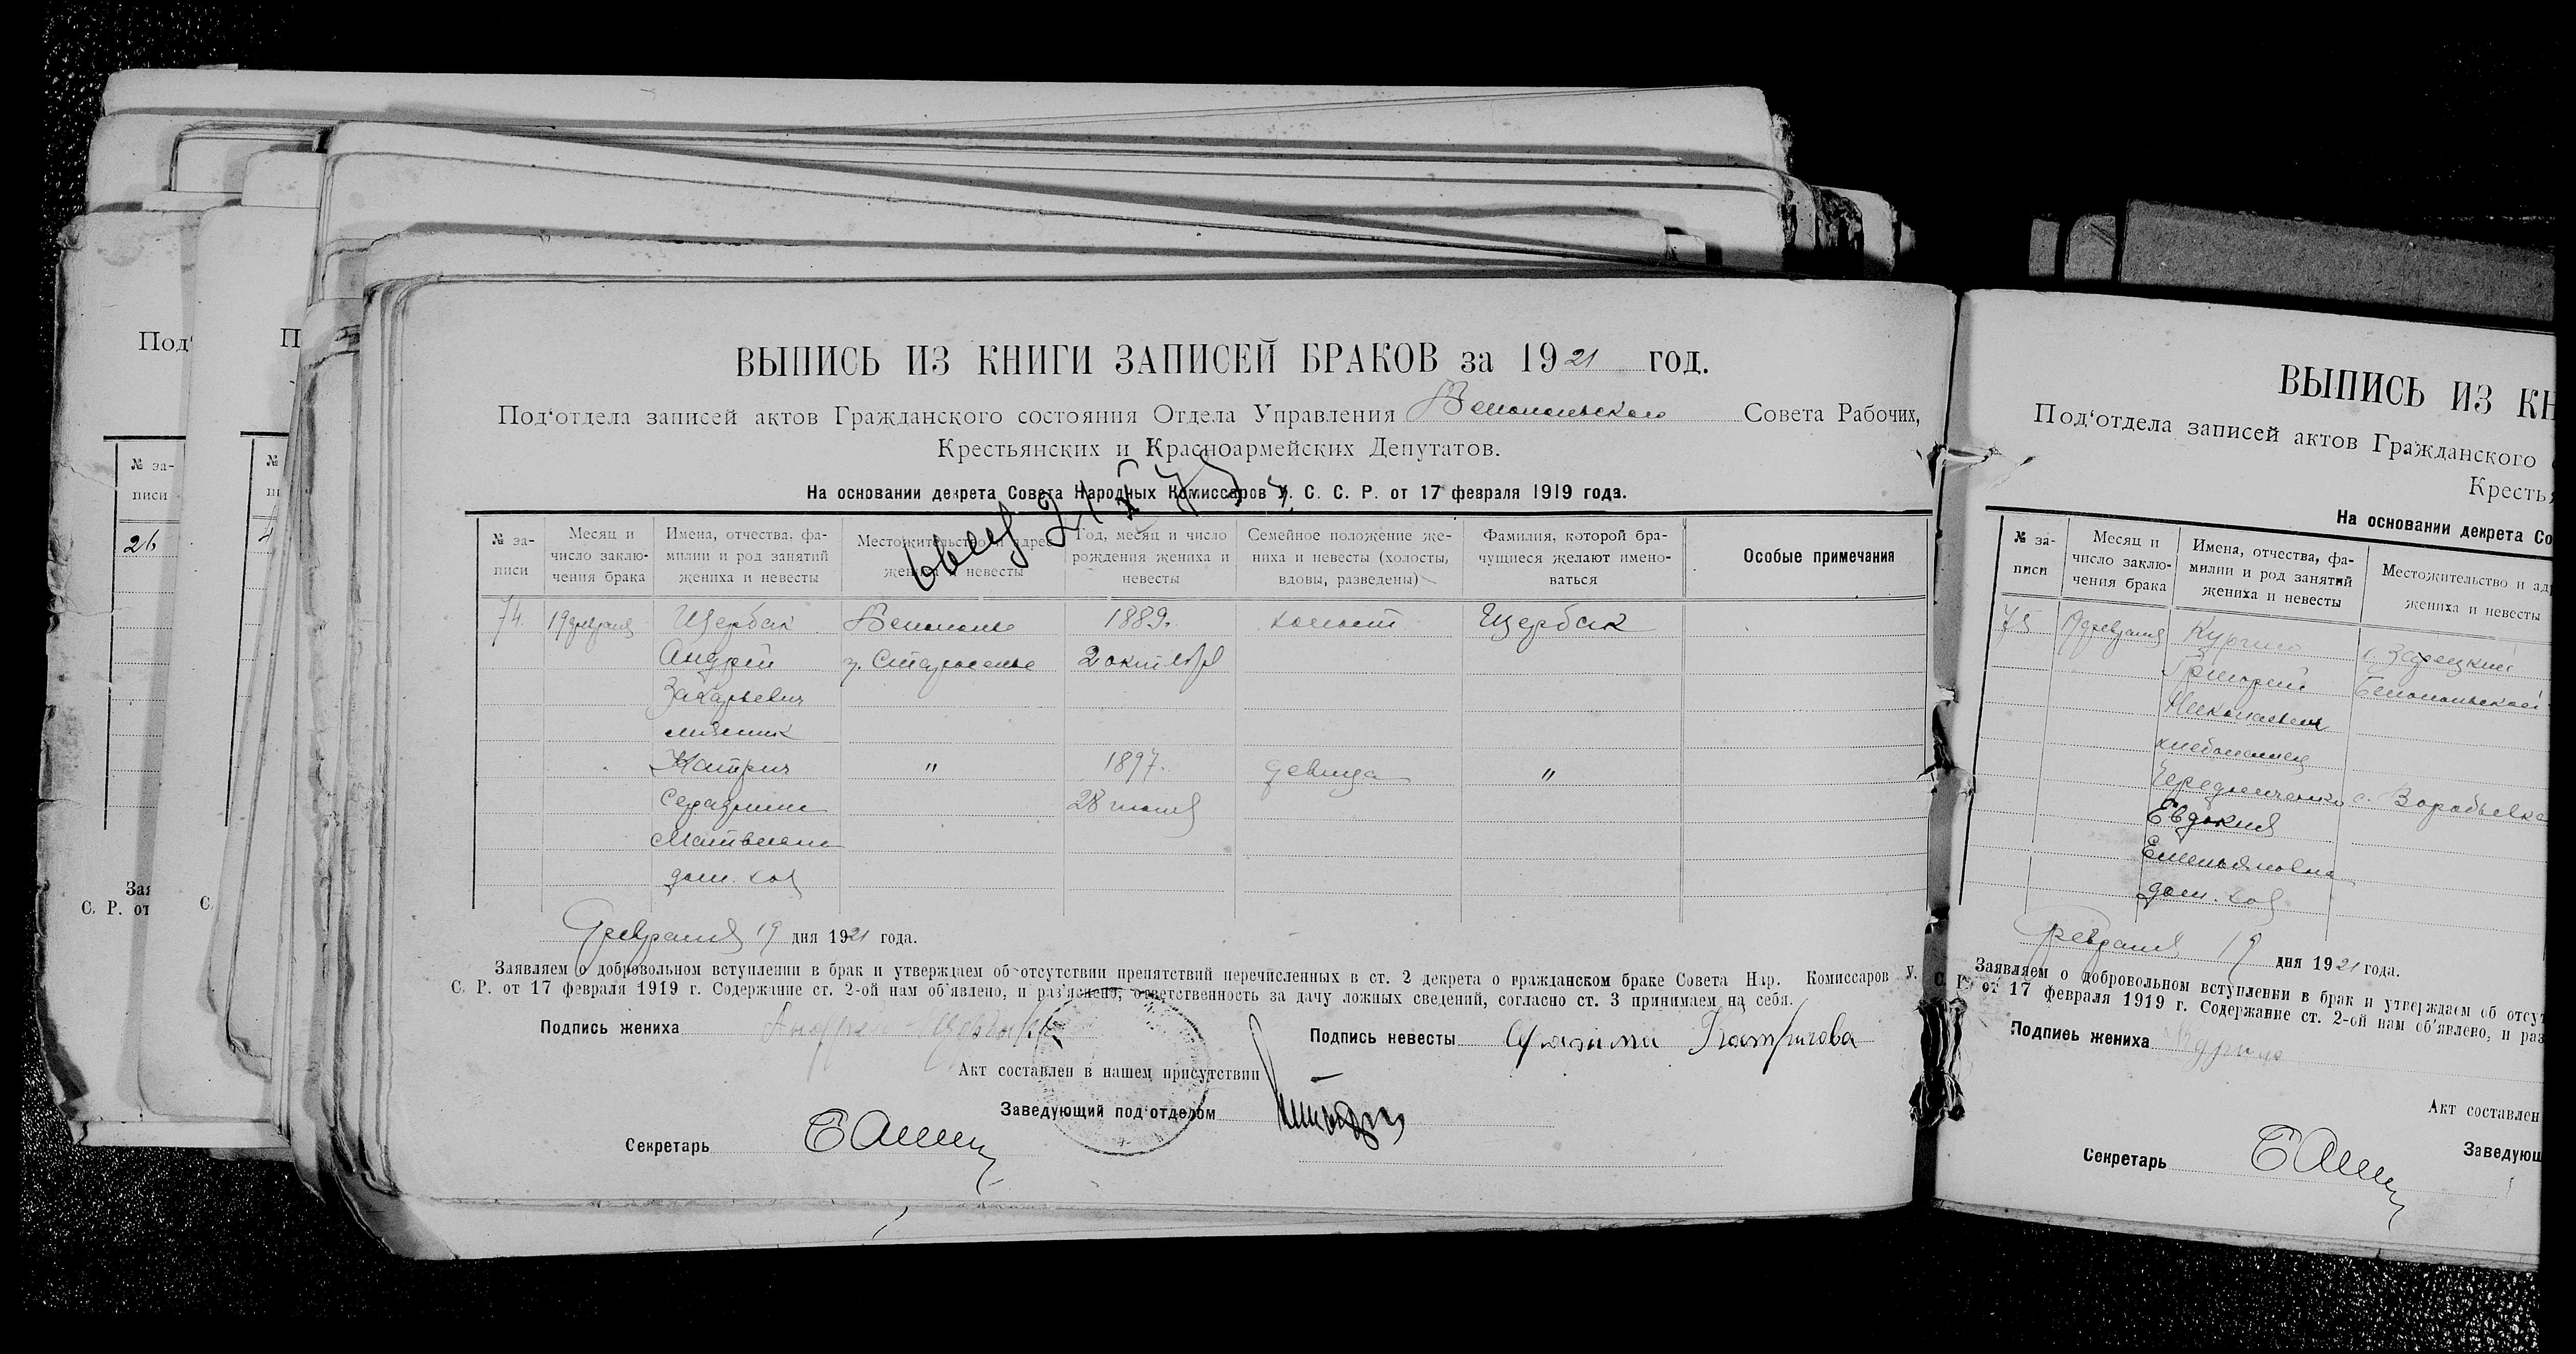 Под'
№ за-
писи
26
Зая
С. Р. от
П
№
С.
ВЫПИСЬ ИЗ КНИГИ ЗАПИСЕЙ БРАКОВ за 1921 год.
Под'отдела записей актов Гражданского состояния Отдела Управления Белопольского Совета Рабочих,
Крестьянских и Красноармейских Депутатов.
На основании декрета Совета Народных Комиссаров У. С. С. Р. от 17 февраля 1919 года.
№ за-
писи
Месяц и
число заклю-
чения брака
Имена, отчества, фа-
милии и род занятий
жениха и невесты
Местожительство и адрес
жениха и невесты
Год, месяц и число
рождения жениха и
невесты
Семейное положение же-
ниха и невесты (холосты,
вдовы, разведены)
Фамилия, которой бра-
чущиеся желают имено-
ваться
Особые примечания
74. 19 февраля Щербак Белополье 1889. холост Щербак
Андрей г. Староселье 2 октября
Захарьевич
Катрич " 1897. девица "
28 июля
дом. хоз
Февраля 19 дня 1921 года.
Заявляем о добровольном вступлении в брак и утверждаем об отсутствии препятствий перечисленных в ст. 2 декрета о гражданском браке Совета Нар. Комиссаров У. С.
С. Р. от 17 февраля 1919 г. Содержание ст. 2-ой нам об'явлено, и раз'яснено, ответственность за дачу ложных сведений, согласно ст. 3 принимаем на себя.
Подпись жениха Андрей Щербак
Подпись невесты Катричова
Акт составлен в нашем присутствии
Заведующий под'отделом
Секретарь
ВЫПИСЬ ИЗ КН
Под'отдела записей актов Гражданского
Кресть
На основании декрета Со
№ за-
писи
Месяц и
число заклю-
чения брака
Имена, отчества, фа-
милии и род занятий
жениха и невесты
Местожительство и ад
жениха и невесты
75 19 февраля с. Зарецкий
Григорий Белопольской
Николаевич
хлебопашец
Чередниченко с. Воробьевка
Евдокия
Емельяновна
дом. хоз
Февраля 19 дня 1921 года.
Заявляем о добровольном вступлении в брак и утверждаем об отсут
Р. от 17 февраля 1919 г. Содержание ст. 2-ой нам об'явлено, и раз
Подпись жениха
Акт составлен
Заведующ
Секретарь